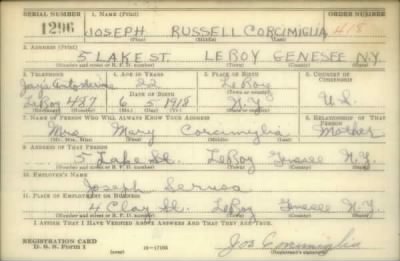 SERIAL NUMBER 1. NAME (Print) ORDER NUMBER
1296 JOSEPH RUSSELL CORCIMIGLIA 418
(First) (Middle) (Last)
2. ADDRESS (Print)
5 LAKE ST. LEROY GENESEE N.Y.
(Number and street or R. F. D. number) (Town) (County) (State)
3. TELEPHONE 4. AGE IN YEARS 5. PLACE OF BIRTH 6. COUNTRY OF CITIZENSHIP
22 LeRoy
DATE OF BIRTH
LeRoy 427 6 5 1918 N.Y. U.S.
(Exchange) (Number) (Mo.) (Day) (Yr.) (State or country)
7. NAME OF PERSON WHO WILL ALWAYS KNOW YOUR ADDRESS 8. RELATIONSHIP OF THAT PERSON
Mrs. Mary Corcimiglia Mother
(Mr., Mrs., Miss) (First) (Middle) (Last)
9. ADDRESS OF THAT PERSON
5 Lake St. LeRoy Genesee N.Y.
(Number and street or R. F. D. number) (Town) (County) (State)
10. EMPLOYER'S NAME
Joseph
11. PLACE OF EMPLOYMENT OR BUSINESS
4 Clay St. LeRoy Genesee N.Y.
(Number and street or R. F. D. number) (Town) (County) (State)
I AFFIRM THAT I HAVE VERIFIED ABOVE ANSWERS AND THAT THEY ARE TRUE.
REGISTRATION CARD
D. S. S. Form 1 (over) 16—17105 Jos Corcimiglia
(Registrant's signature)